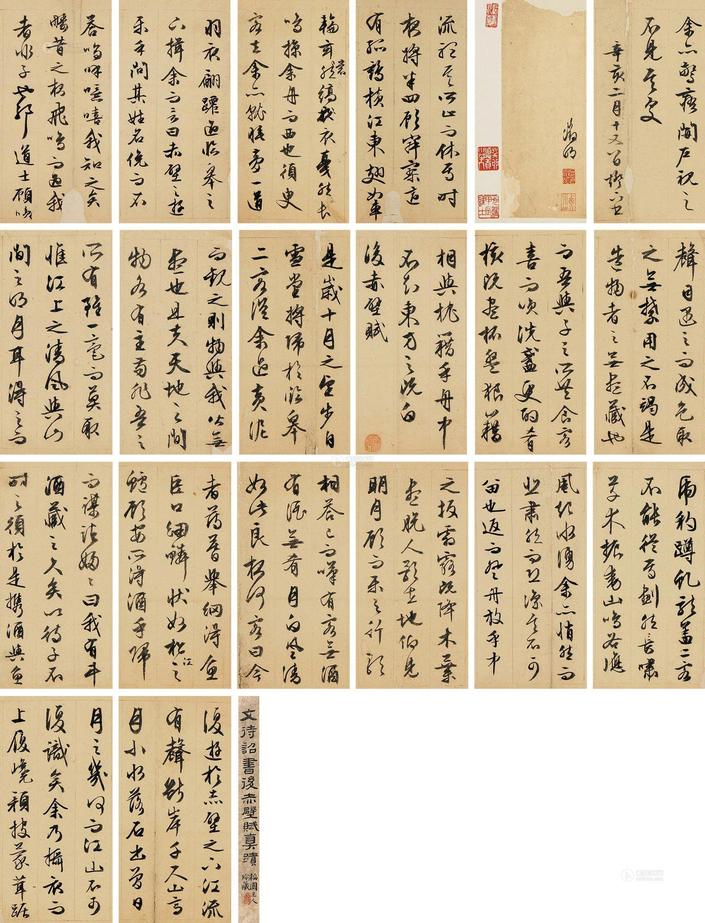 余亦驚寤開戶視之
不見其處
辛亥二月十又一日
徵明
流聽其所止而休焉時
夜將半四顧寂寥適
有孤鶴橫江東來翅如車
輪玄裳縞衣戛然長
鳴掠余舟而西也須臾
客去余亦就睡夢一道
羽衣翩躚過臨皋之
下揖余而言曰赤壁之遊
樂乎問其姓名俛而不
答嗚呼噫嘻我知之矣
疇昔之夜飛鳴而過我
者非子也耶道士顧笑
聲目遇之而成色取
之無禁用之不竭是
造物者之無盡藏也
而吾與子之所共食客
喜而笑洗盞更酌肴
核既盡杯盤狼籍
相與枕藉乎舟中
不知東方之既白
後赤壁賦
是歲十月之望步自
雪堂將歸於臨皋
二客從余過黃泥
而觀之則物與我皆無
盡也且夫天地之間
物各有主苟非吾之
所有雖一毫而莫取
惟江上之清風與山
間之明月耳得之而
虎豹蹲虬龍蓋二客
不能從焉劃然長嘯
草木振動山鳴谷應
風起水湧余亦悄然而
悲肅然而恐凜乎其不可
留也返而登舟放乎中
之坂霜露既降木葉
盡脫人影在地仰見
明月顧而樂之行歌
相答已而嘆有客無酒
有酒無肴月白風清
如此良夜何客曰今
者薄暮舉網得魚
巨口細鱗狀如松江之
鱸顧安所得酒乎歸
而謀諸婦婦曰我有斗
酒藏之久矣以待子不
時之須於是攜酒與魚
文待詔書後赤壁賦真蹟
復遊於赤壁之下江流
有聲斷岸千尺山高
月小水落石出曾日
月之幾何而江山不可
復識矣余乃攝衣而
上履巉巖披蒙茸踞